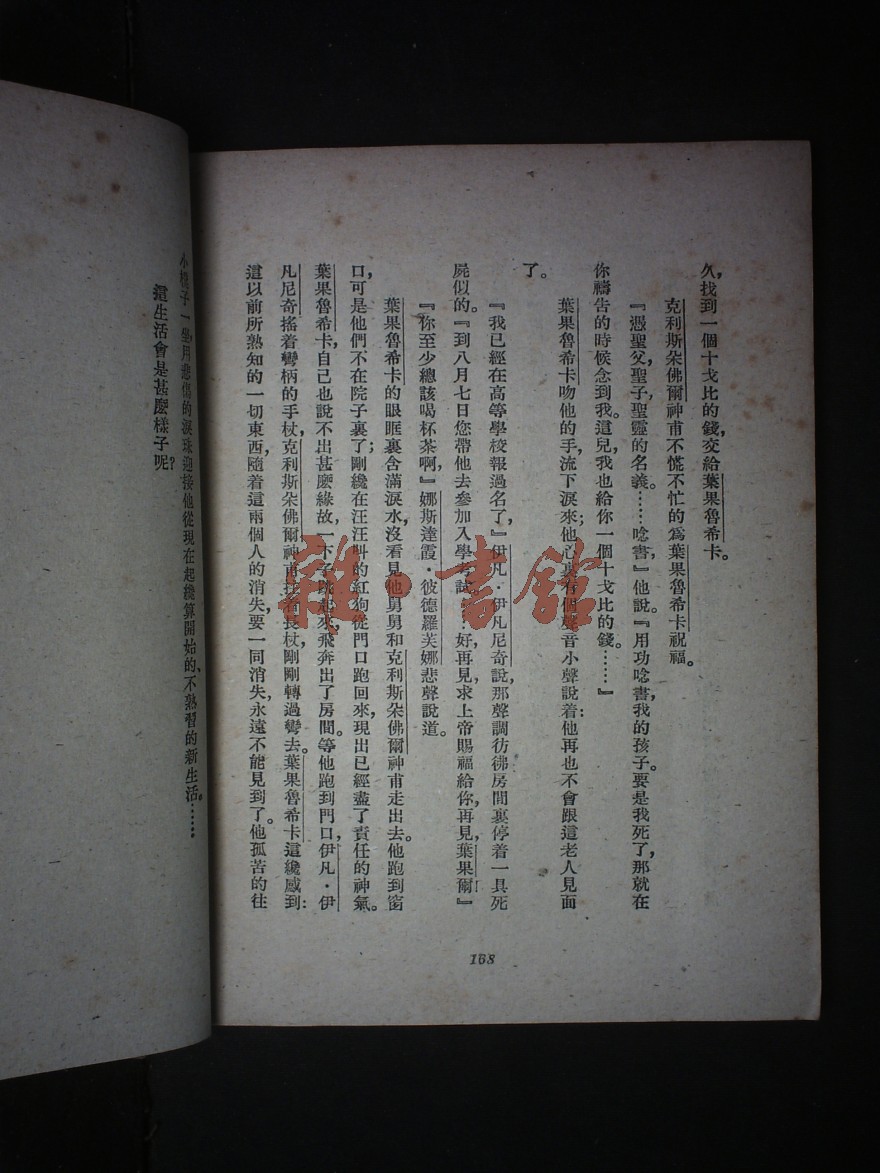 久，找到一個十戈比的錢，交給葉果魯希卡。
克利斯朵佛爾神甫不慌不忙的爲葉果魯希卡祝福。
『憑聖父，聖子，聖靈的名義。……唸書，』他說。『用功唸書，我的孩子。要是我死了，那就在
你禱告的時候念到我。這兒，我也給你一個十戈比的錢。……』
葉果魯希卡吻他的手，流下淚來；他心裏有個聲音小聲說着：他再也不會跟這老人見面
了。
『我已經在高等學校報過名了，』伊凡·伊凡尼奇說，那聲調彷彿房間裏停着一具死
屍似的。『到八月七日您帶他去參加入學考試。好，再見，求上帝賜福給你，再見，葉果爾』
『你至少總該喝杯茶啊，』娜斯達霞·彼德羅芙娜悲聲說道。
葉果魯希卡的眼眶裏含滿淚水，沒看見他舅舅和克利斯朵佛爾神甫走出去。他跑到窗
口，可是他們不在院子裏了；剛纔在汪汪叫的紅狗從門口跑回來，現出已經盡了責任的神氣。
葉果魯希卡，自己也說不出甚麽緣故，一下子跳起來，飛奔出了房間。等他跑到門口，伊凡·伊
凡尼奇搖着彎柄的手杖，克利斯朵佛爾神甫拄着長杖，剛剛轉過彎去。葉果魯希卡這纔感到：
這以前所熟知的一切東西，隨着這兩個人的消失，要一同消失，永遠不能見到了。他孤苦的往
小櫈子一坐，用悲傷的淚珠迎接他從現在起纔算開始的、不熟習的新生活。……
這生活會是甚麽樣子呢？
168
書館